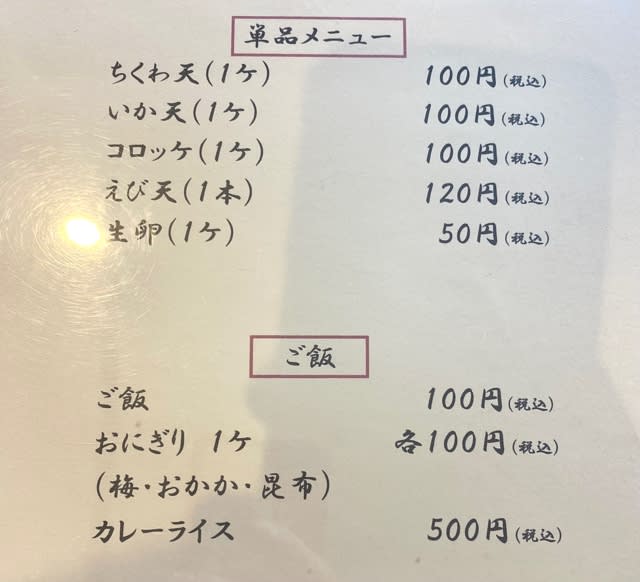 単品メニュー
ちくわ天(1ケ) 100円(税込)
いか天(1ケ) 100円(税込)
コロッケ(1ケ) 100円(税込)
えび天(1本) 120円(税込)
生卵(1ケ) 50円(税込)
ご飯
ご飯 100円(税込)
おにぎり 1ケ 各100円(税込)
(梅・おかか・昆布)
カレーライス 500円(税込)